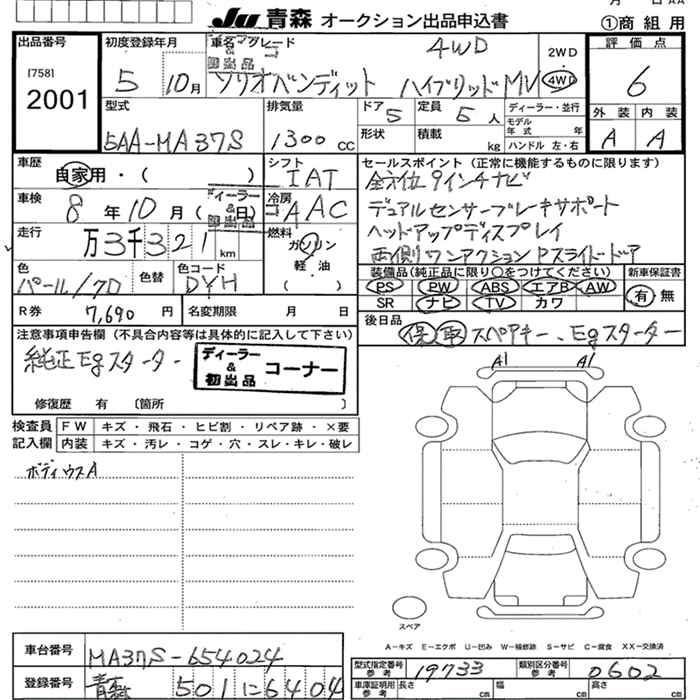 Ju 青森 オークション出品申込書
①商 組 用
出品番号
[758]
2001
初度登録年月
5 10月
車名・グレード
ソリオバンディット ハイブリッドMV
4WD
2WD
4WD
評 価 点
6
外 装 内 装
A A
型式
5AA-MA37S
排気量
1300 CC
ドア 5
定員 5 人
形状
積載 kg
ディーラー・並行
モデル
年 式 年
ハンドル 左・右
車歴
自家用・( )
シフト
IAT
車検
8 年 10 月 ( 日)
ディーラー
&
初出品
冷房
AAC
走行
万3千321 km
燃料
ガソリン
軽 油
( )
色
パール/70
色替
色コード
DYH
R券 7,690 円
名変期限 月 日
セールスポイント(正常に機能するものに限ります)
全方位 9インチナビ
デュアルセンサーブレーキサポート
ヘッドアップディスプレイ
両側ワンアクションPスライドドア
装備品(純正品に限り〇をつけてください)
PS PW ABS エアB AW
SR ナビ TV カワ
新車保証書
有 無
後日品
保 取 スペアキー、Egスターター
注意事項申告欄(不具合内容等は具体的に記入して下さい)
純正Egスターター
ディーラー
&
初出品
コーナー
修復歴 有 〔箇所 〕
検査員
記入欄
FW キズ・飛石・ヒビ割・リペア跡・×要
内装 キズ・汚レ・コゲ・穴・スレ・キレ・破レ
ボディウスA
A1 A1
スペア
A-キズ E-エクボ U-凹み W-補修跡 S-サビ C-腐食 XX-交換済
車台番号
MA37S-654024
登録番号
青森 501に6404
型式指定番号
参考
19733
類別区分番号
参考
0602
車庫証明用
参考
長さ cm 幅 cm 高さ cm